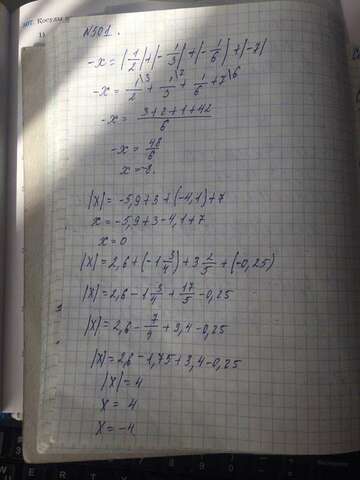 N 301.
-x = |1/2| + |-1/3| + |-1/6| + |-7|
-x = 1/2\3 + 1/3\2 + 1/6 + 7\6
-x = 3+2+1+42/6
-x = 48/6
x = -8.
|x| = -5,9+3+(-4,1)+7
x = -5,9+3-4,1+7
x = 0
|x| = 2,6+(-1 3/4)+3 2/5+(-0,25)
|x| = 2,6-1 3/4+17/5-0,25
|x| = 2,6-7/4+3,4-0,25
|x| = 2,6-1,75+3,4-0,25
|x| = 4
x = 4
x = -4